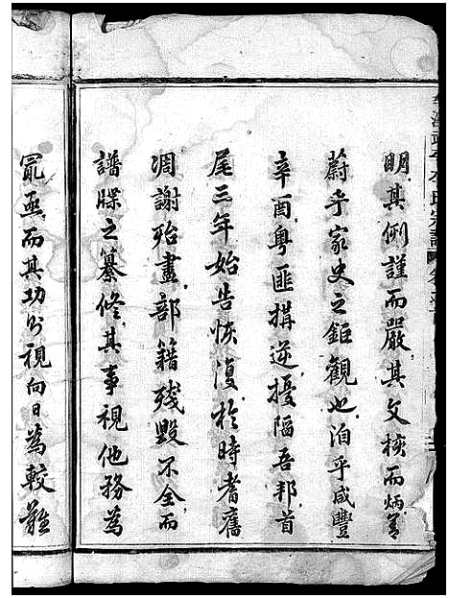 明其例謹而嚴其文核而炳蔚
蔚乎家史之鉅觀也洎乎咸豐
辛酉粵匪搆逆擾陷吾邦首
尾三年始告恢復於時耆舊
凋謝殆盡部籍殘毀不全而
譜牒之纂修其事視他務為
最亟而其功公視向日為較難